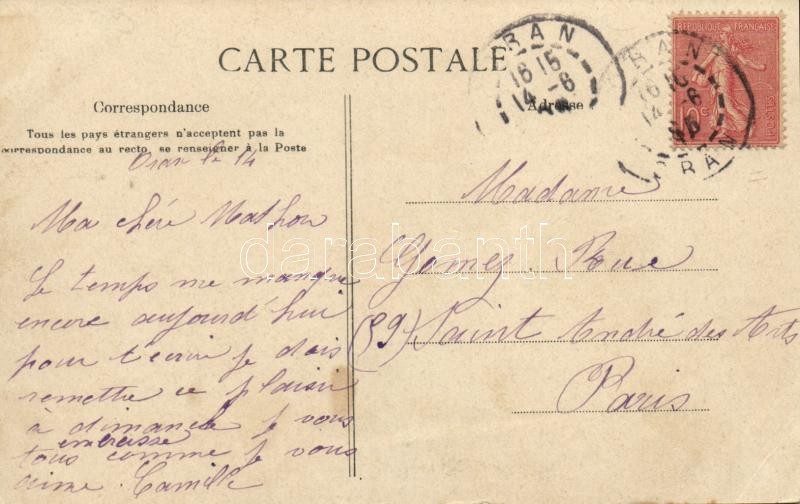 CARTE POSTALE
Correspondance
Tous les pays étrangers n'acceptent pas la
correspondance au recto, se renseigner à la Poste
Oran le 14
Ma chère Mathou
Le temps me manque
encore aujourd'hui
pour t'écrire je dois
remettre ce plaisir
à dimanche je vous
embrasse
tous comme je vous
aime. Camille
Adresse
Madame
Gomez. Rue
(59) Saint André des Arts
Paris
ORAN
16 15
14 -6
RÉPUBLIQUE FRANÇAISE
POSTES
10c
ORAN
16 15
14 -6
ORAN
darabanth